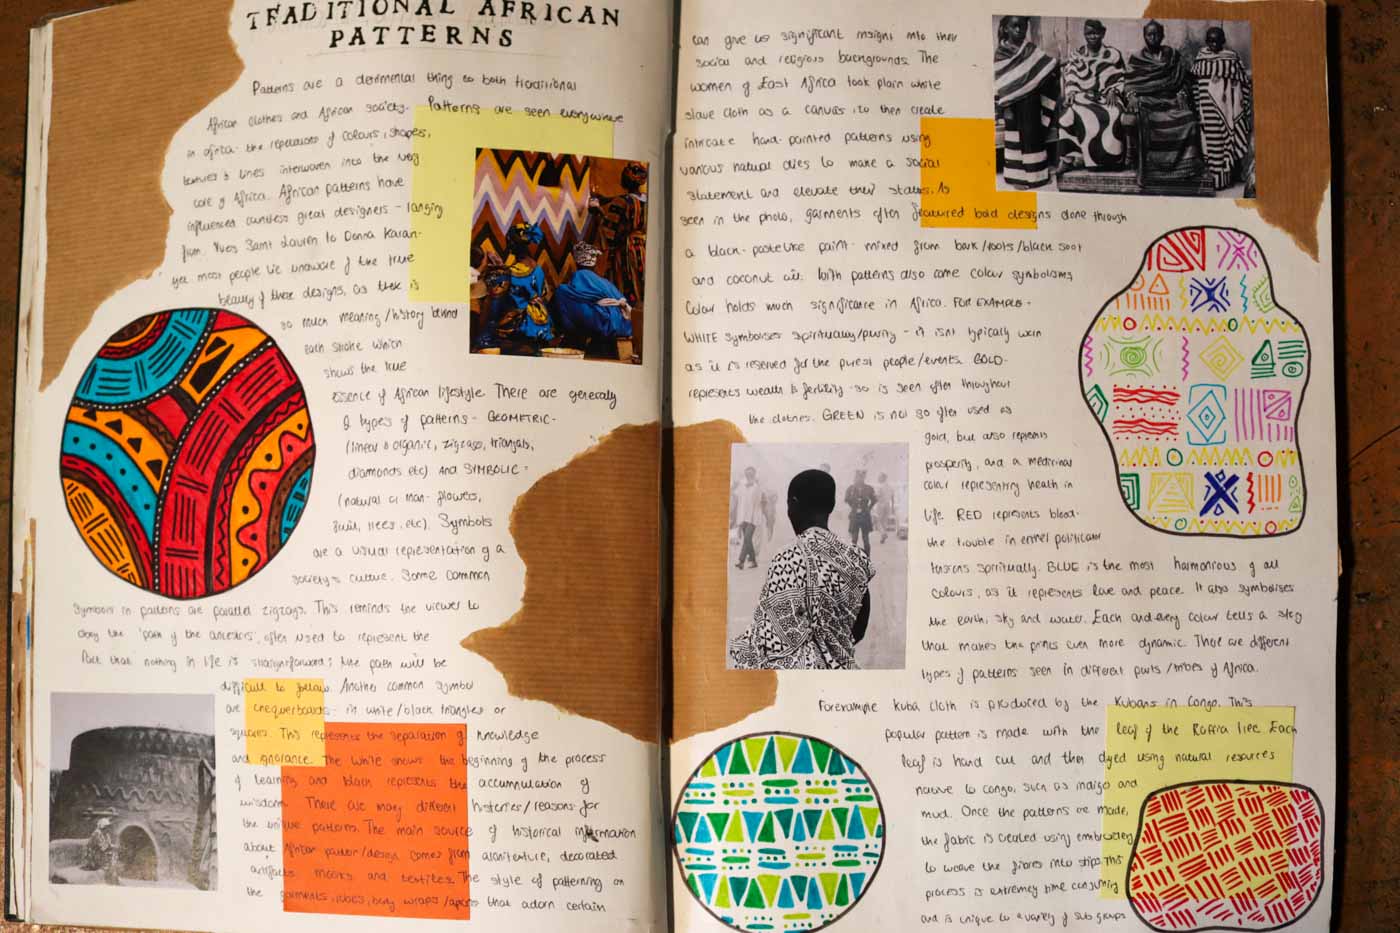 TRADITIONAL AFRICAN
PATTERNS
Patterns are a detremental thing to both traditional
African clothes and African society. Patterns are seen everywhere
in africa- the repetations of colours, shapes,
textures & lines interwoven into the very
core of Africa. African patterns have
influenced countless great designers - ranging
from Yves Saint Lauren to Donna Karan-
yet most people live unaware of the true
beauty of these designs, as there is
so much meaning/history behind
each stroke which
shows the true
essence of African lifestyle. There are generally
2 types of patterns - GEOMETRIC-
(linear & organic, zigzags, triangls,
diamonds etc) and SYMBOLIC -
(natural or man- flowers,
fruit, trees, etc). Symbols
are a visual representation of a
society's culture. Some common
symbols in pattons are parallel zigzags. This reminds the viewer to
obey the 'path of the ancestors', often used to represent the
fact that nothing in life is straightforward; the path will be
difficult to follow. Another common symbol
are chequerboards- in white/black triangles or
squares. This represents the separation of knowledge
and ignorance. The white shows the beginning of the process
of learning and black represents the accumulation of
wisdom. There are many different histories/reasons for
the unique patterns. The main source of historical information
about African pattern/design comes from architenture, decorated
artifacts, masks and textiles. The style of patterning on
the garments, robes, body wraps/aprons that adorn certain
can give us significant insight into their
social and religious backgrounds. The
women of East Africa took plain white
slave cloth as a canvas, to then create
intricate hand-painted patterns using
various natural dies to make a social
statement and elevate their status. As
seen in the photo, garments often featured bold designs done through
a black- pastelike paint- mixed from bark/roots/black soot
and coconut oil. With patterns also come colour symbolisms,
Colour holds much significance in Africa. FOR EXAMPLE -
WHITE symbolises spirituality/purity - it isnt typically worn
as it is reserved for the purest people/events. GOLD-
represents wealth & fertility -so is seen often throughout
the clothes. GREEN is not so often used as
gold, but also represents
prosperity, and a medicinal
color representing health in
life. RED represents blood-
the trouble in either political or
tensions spiritually. BLUE is the most harmonious of all
colours, as it represents love and peace. It also symbolises
the earth, sky and water. Each and every colour tells a story
that makes the prints even more dynamic. There are different
types of patterns seen in different parts/tribes of Africa.
Forexample Kuba cloth is produced by the Kubans in Congo. This
popular pattern is made with the leaf of the Raffia tree. Each
leaf is hand cut and then dyed using natural resources
native to Congo, such as indigo and
mud. Once the patterns are made,
the fabric is created using embroidery
to weave the fibres into strips. This
process is extremely time consuming
and is unique to a variety of sub groups